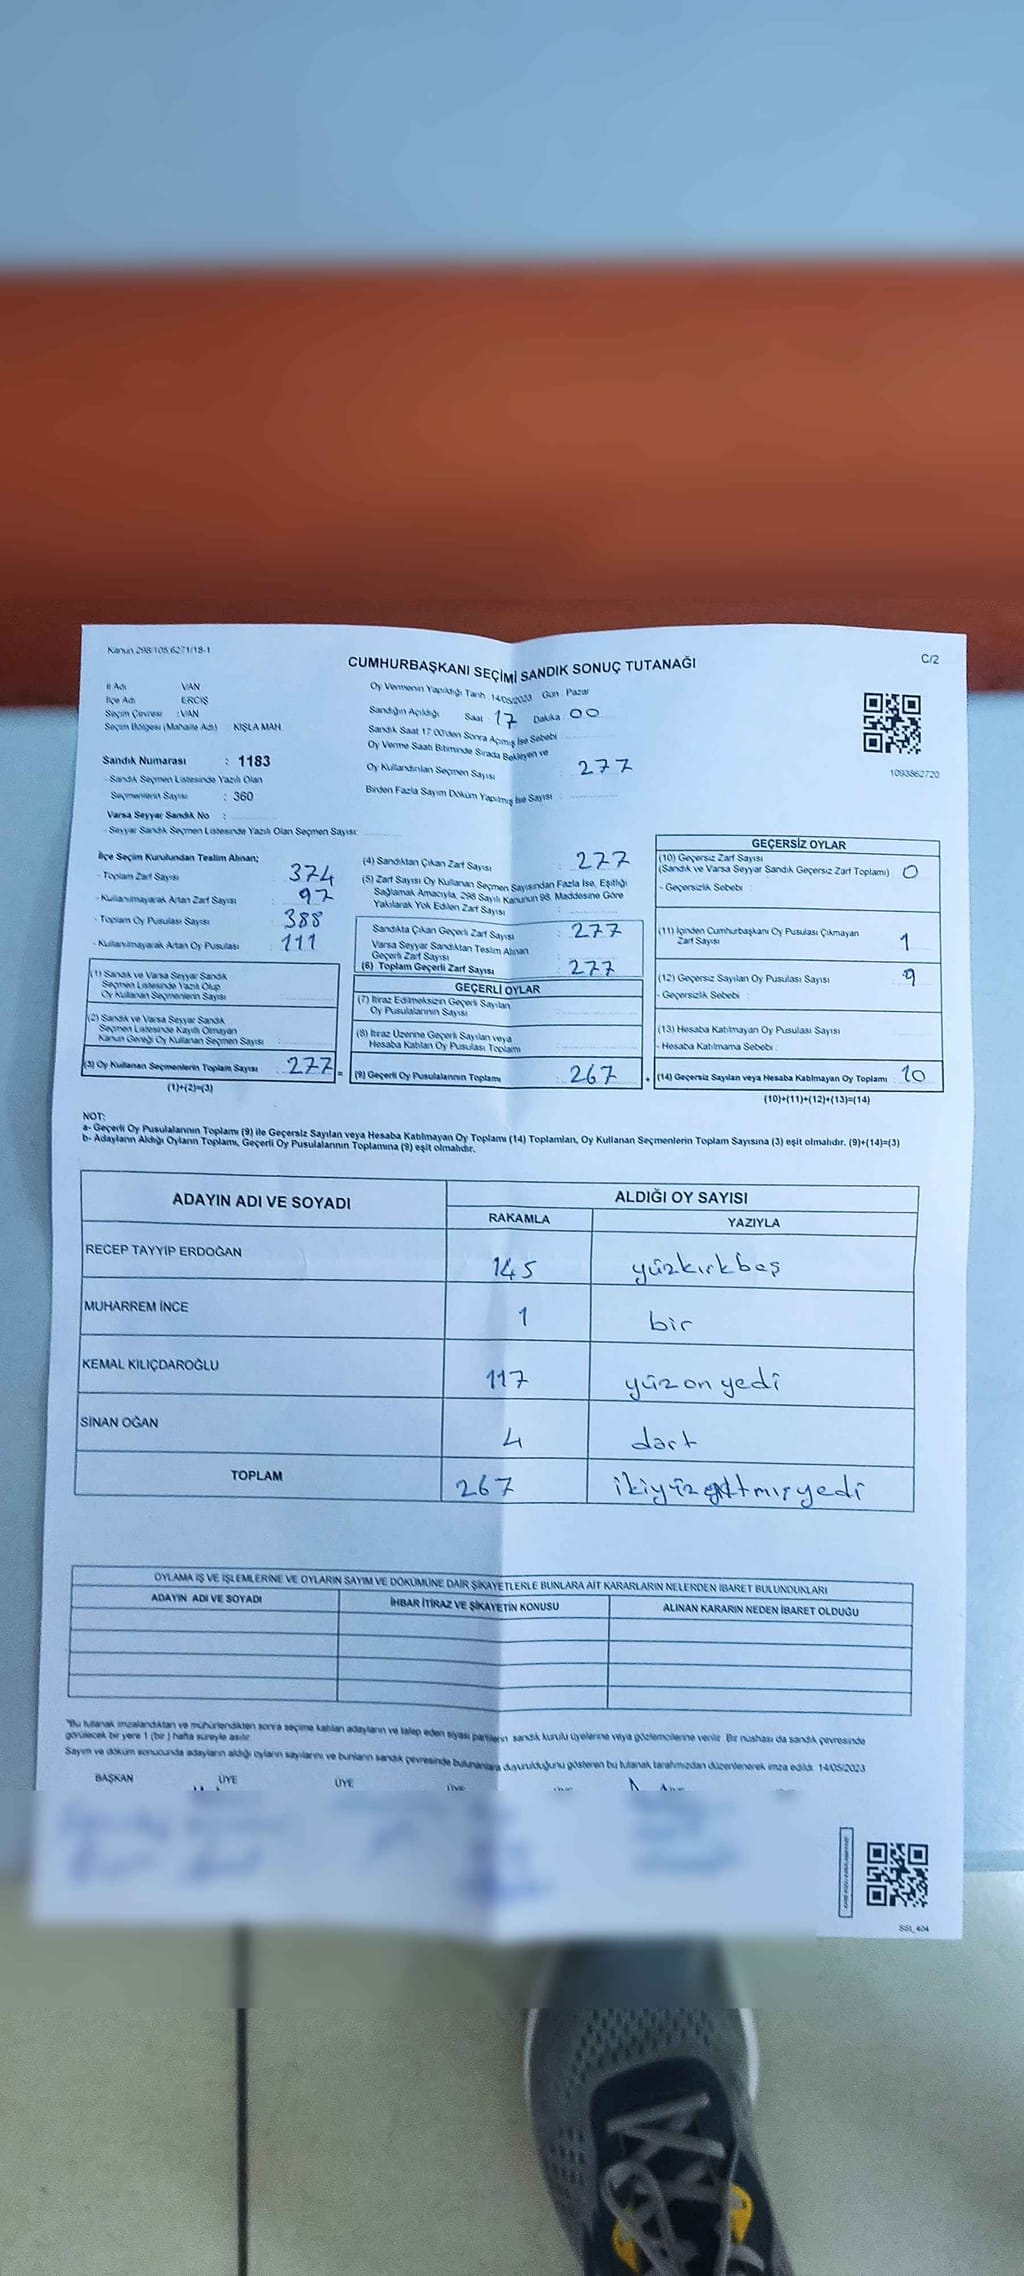 Kanun 298/105,6271/18-1
CUMHURBAŞKANI SEÇİMİ SANDIK SONUÇ TUTANAĞI
C/2
İl Adı VAN
İlçe Adı ERCİŞ
Seçim Çevresi : VAN
Seçim Bölgesi (Mahalle Adı) KIŞLA MAH
Sandık Numarası : 1183
- Sandık Seçmen Listesinde Yazılı Olan
Seçmenlerin Sayısı : 360
Varsa Seyyar Sandık No :
- Seyyar Sandık Seçmen Listesinde Yazılı Olan Seçmen Sayısı:
Oy Vermenin Yapıldığı Tarih 14/05/2023 Gün Pazar
Sandığın Açıldığı Saat 17 Dakika 00
Sandık Saat 17 00'den Sonra Açmış İse Sebebi
Oy Verme Saati Bitiminde Sırada Bekleyen ve
Oy Kullandırılan Seçmen Sayısı 277
Birden Fazla Sayım Döküm Yapılmış İse Sayısı
1093862720
İlçe Seçim Kurulundan Teslim Alınan;
- Toplam Zarf Sayısı 374
- Kullanılmayarak Artan Zarf Sayısı 97
- Toplam Oy Pusulası Sayısı 388
- Kullanılmayarak Artan Oy Pusulası 111
(1) Sandık ve Varsa Seyyar Sandık
Seçmen Listesinde Yazılı Olup
Oy Kullanan Seçmenlerin Sayısı
(2) Sandık ve Varsa Seyyar Sandık
Seçmen Listesinde Kayıtlı Olmayan
Kanun Gereği Oy Kullanan Seçmen Sayısı
(3) Oy Kullanan Seçmenlerin Toplam Sayısı 277 =
(1)+(2)=(3)
(4) Sandıktan Çıkan Zarf Sayısı : 277
(5) Zarf Sayısı Oy Kullanan Seçmen Sayısından Fazla İse, Eşitliği
Sağlamak Amacıyla, 298 Sayılı Kanunun 98. Maddesine Göre
Yakılarak Yok Edilen Zarf Sayısı
Sandıkta Çıkan Geçerli Zarf Sayısı : 277
Varsa Seyyar Sandıktan Teslim Alınan
Geçerli Zarf Sayısı
(6) Toplam Geçerli Zarf Sayısı 277
GEÇERLİ OYLAR
(7) İtiraz Edilmeksizin Geçerli Sayılan
Oy Pusulalarının Sayısı
(8) İtiraz Üzerine Geçerli Sayılan veya
Hesaba Katılan Oy Pusulası Toplamı
(9) Geçerli Oy Pusulalarının Toplamı 267 +
GEÇERSİZ OYLAR
(10) Geçersiz Zarf Sayısı
(Sandık ve Varsa Seyyar Sandık Geçersiz Zarf Toplamı) 0
- Geçersizlik Sebebi :
(11) İçinden Cumhurbaşkanı Oy Pusulası Çıkmayan
Zarf Sayısı 1
(12) Geçersiz Sayılan Oy Pusulası Sayısı 9
- Geçersizlik Sebebi :
(13) Hesaba Katılmayan Oy Pusulası Sayısı
- Hesaba Katılmama Sebebi :
(14) Geçersiz Sayılan veya Hesaba Katılmayan Oy Toplamı 10
(10)+(11)+(12)+(13)=(14)
NOT:
a- Geçerli Oy Pusulalarının Toplamı (9) ile Geçersiz Sayılan veya Hesaba Katılmayan Oy Toplamı (14) Toplamları, Oy Kullanan Seçmenlerin Toplam Sayısına (3) eşit olmalıdır. (9)+(14)=(3)
b- Adayların Aldığı Oyların Toplamı, Geçerli Oy Pusulalarının Toplamına (9) eşit olmalıdır.
ADAYIN ADI VE SOYADI ALDIĞI OY SAYISI
RAKAMLA YAZIYLA
RECEP TAYYİP ERDOĞAN 145 yüzkırkbeş
MUHARREM İNCE 1 bir
KEMAL KILIÇDAROĞLU 117 yüz on yedi
SİNAN OĞAN 4 dört
TOPLAM 267 ikiyüzaltmışyedi
OYLAMA İŞ VE İŞLEMLERİNE VE OYLARIN SAYIM VE DÖKÜMÜNE DAİR ŞİKAYETLERLE BUNLARA AİT KARARLARIN NELERDEN İBARET BULUNDUKLARI
ADAYIN ADI VE SOYADI İHBAR İTİRAZ VE ŞİKAYETİN KONUSU ALINAN KARARIN NEDEN İBARET OLDUĞU
*Bu tutanak imzalandıktan ve mühürlendikten sonra seçime katılan adayların ve talep eden siyasi partilerin sandık kurulu üyelerine veya gözlemcilerine verilir. Bir nüshası da sandık çevresinde
görülecek bir yere 1 (bir) hafta süreyle asılır
Sayım ve döküm sonucunda adayların aldığı oyların sayılarını ve bunların sandık çevresinde bulunanlara duyurulduğunu gösteren bu tutanak tarafımızdan düzenlenerek imza edildi. 14/05/2023
BAŞKAN ÜYE ÜYE
SSI_404